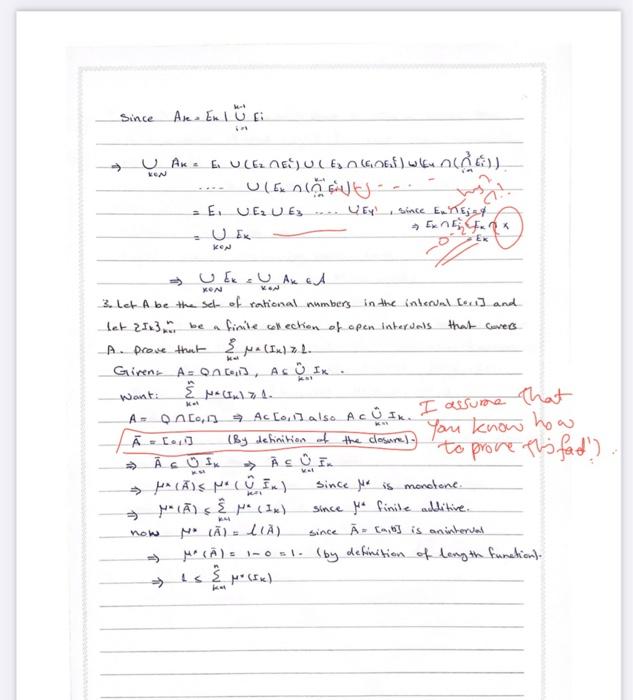 Since Aₖ = Eₖ \ ⋃ᵢ₌₁ᵏ⁻¹ Eᵢ
⇒ ⋃ₖ∈ℕ Aₖ = E₁ ∪ (E₂ ∩ E₁ᶜ) ∪ (E₃ ∩ (E₁∩E₂)ᶜ) ∪ (E₄ ∩ (⋂ᵢ₌₁³ Eᵢᶜ))
.... ∪ (Eₖ ∩ (⋂ Eᵢᶜ)) ∪ - - - -
why? ∩?!
= E₁ ∪ E₂ ∪ E₃ .... , since Eₖ ∩ Eⱼ = ∅
= ⋃ₖ∈ℕ Eₖ ⇒ Eₖ ∩ Eⱼᶜ = Eₖ ×
-0.25
⇒ ⋃ₖ∈ℕ Eₖ = ⋃ₖ∈ℕ Aₖ ∈ 𝒜
3. Let A be the set of rational numbers in the interval [0,1] and
let {Iₖ}ₖ₌₁ⁿ be a finite collection of open intervals that covers
A. prove that Σₖ₌₁ⁿ μ*(Iₖ) ≥ 1.
Given: A = Q∩[0,1], A ⊆ ⋃ₖ₌₁ⁿ Iₖ .
Want: Σₖ₌₁ⁿ μ*(Iₖ) ≥ 1.
A = Q∩[0,1] ⇒ A ⊂ [0,1] also A ⊂ ⋃ₖ₌₁ⁿ Iₖ.
I assume that
you know how
to prove this fact!)
Ā = [0,1] (By definition of the closure).
⇒ Ā ⊆ ⋃ₖ₌₁ⁿ Iₖ ⇒ Ā ⊆ ⋃ₖ₌₁ⁿ Īₖ
⇒ μ*(Ā) ≤ μ*(⋃ₖ₌₁ⁿ Īₖ) since μ* is monotone.
⇒ μ*(Ā) ≤ Σₖ₌₁ⁿ μ*(Iₖ) since μ* finite additive.
now μ*(Ā) = l(Ā) since Ā = [a,b] is an interval
⇒ μ*(Ā) = 1-0 = 1. (by definition of length function).
⇒ 1 ≤ Σₖ₌₁ⁿ μ*(Iₖ)